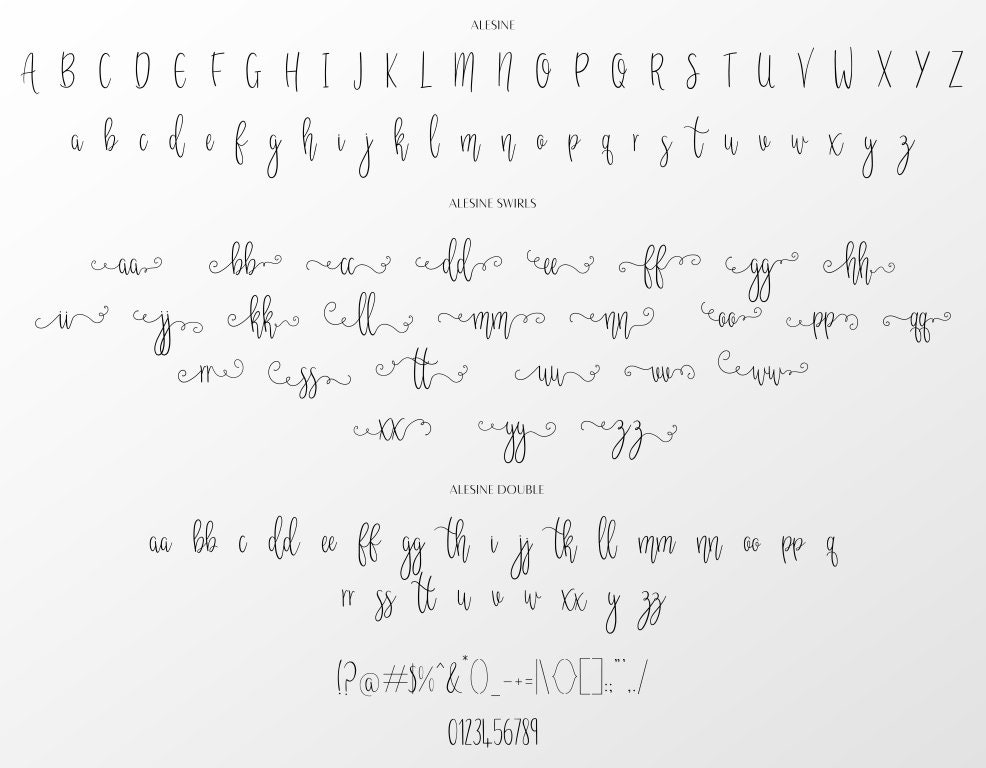 ALESINE
A B C D E F G H I J K L M N O P Q R S T U V W X Y Z
a b c d e f g h i j k l m n o p q r s t u v w x y z
ALESINE SWIRLS
aa bb cc dd ee ff gg hh
ii jj kk ll mm nn oo pp qq
rr ss tt uu vv ww
xx yy zz
ALESINE DOUBLE
aa bb c dd ee ff gg th i jj tk ll mm nn oo pp q
rr ss tt u v w xx y zz
(?@#$%^&*()_-+=|\{}[]:;"',./
0123456789